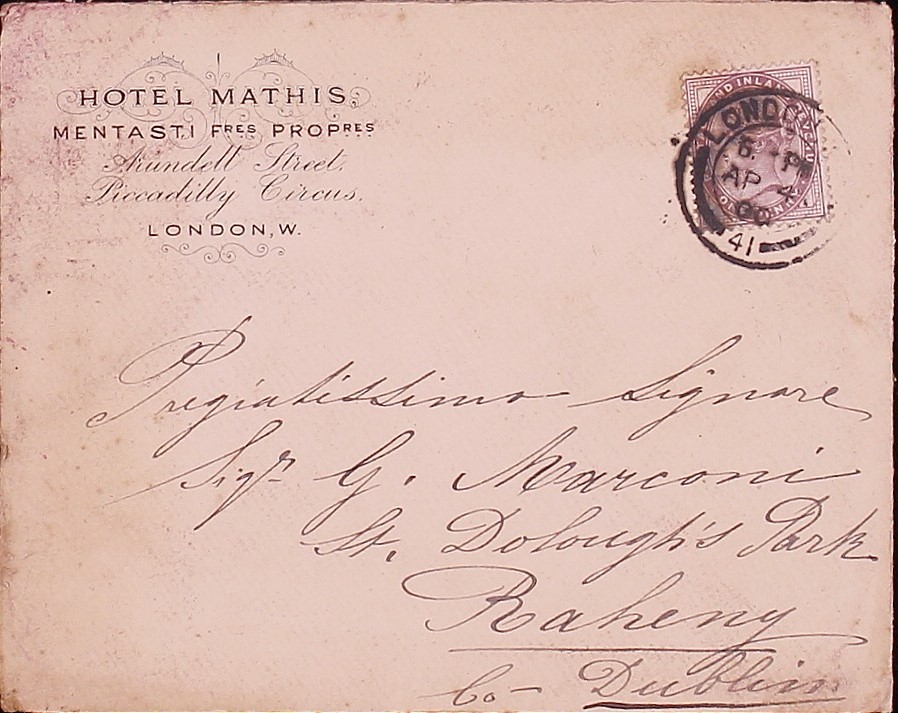 HOTEL MATHIS,
MENTASTI FRES PROPRES
Arundell Street,
Piccadilly Circus,
LONDON, W.
LONDO
AP 4
00
41
Pregiatissimo Signore
Sigr G. Marconi
St. Dolough's Park
Raheny
Co- Dublin